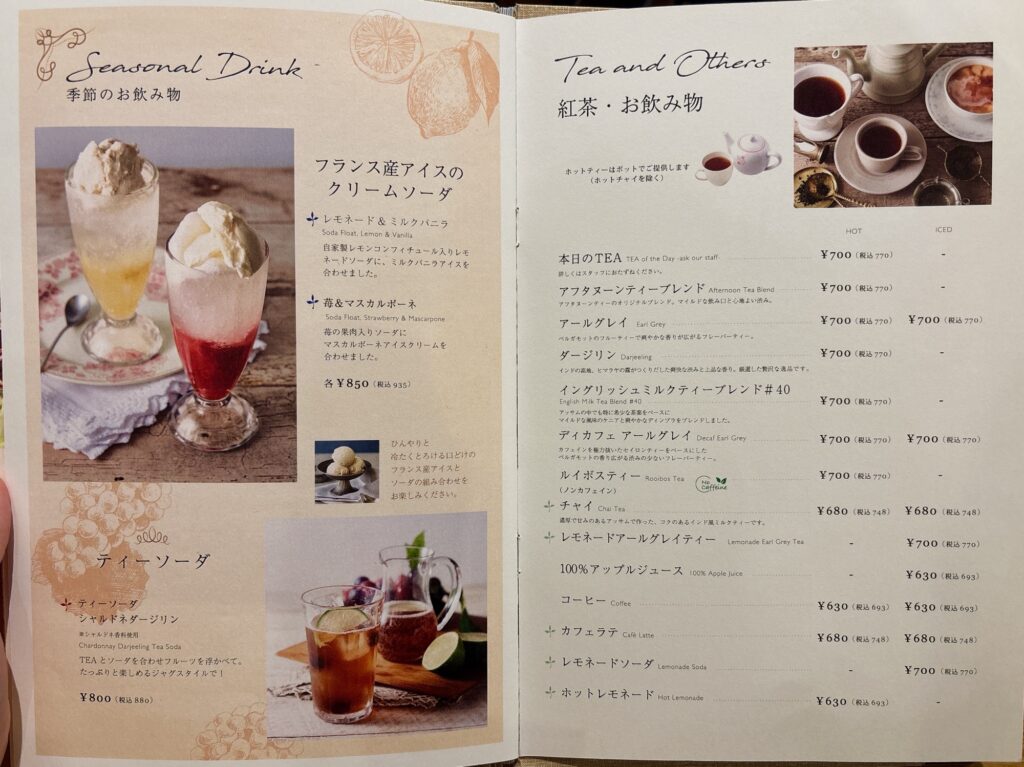 Seasonal Drink
季節のお飲み物
フランス産アイスの
クリームソーダ
レモネード & ミルクバニラ
Soda Float, Lemon & Vanilla
自家製レモンコンフィチュール入りレモ
ネードソーダに、ミルクバニラアイスを
合わせました。
苺&マスカルポーネ
Soda Float, Strawberry & Mascarpone
苺の果肉入りソーダに
マスカルポーネアイスクリームを
合わせました。
各 ¥850(税込 935)
ひんやりと
冷たくとろける口どけの
フランス産アイスと
ソーダの組み合わせを
お楽しみください。
ティーソーダ
ティーソーダ
シャルドネダージリン
※シャルドネ香料使用
Chardonnay Darjeeling Tea Soda
TEAとソーダを合わせフルーツを浮かべて。
たっぷりと楽しめるジャグスタイルで!
¥800(税込 880)
Tea and Others
紅茶・お飲み物
ホットティーはポットでご提供します
(ホットチャイを除く)
HOT ICED
本日のTEA TEA of the Day -ask our staff- ¥700(税込 770) -
詳しくはスタッフにおたずねください。
アフタヌーンティーブレンド Afternoon Tea Blend ¥700(税込 770) -
アフタヌーンティーのオリジナルブレンド。マイルドな飲み口と心地よい渋み。
アールグレイ Earl Grey ¥700(税込 770) ¥700(税込 770)
ベルガモットのフルーティーで爽やかな香りが広がるフレーバーティー。
ダージリン Darjeeling ¥700(税込 770) -
インドの高地、ヒマラヤの霧がつくりだした爽快な渋みと上品な香り。厳選した贅沢な逸品です。
イングリッシュミルクティーブレンド#40
English Milk Tea Blend #40 ¥700(税込 770) -
アッサムの中でも特に希少な茶葉をベースに
マイルドな風味のケニアと爽やかなディンブラをブレンドしました。
ディカフェ アールグレイ Decaf Earl Grey ¥700(税込 770) ¥700(税込 770)
カフェインを極力抜いたセイロンティーをベースにした
ベルガモットの香り広がる渋みの少ないフレーバーティー。
ルイボスティー Rooibos Tea ¥700(税込 770) -
(ノンカフェイン)
No Caffeine
チャイ Chai Tea ¥680(税込 748) ¥680(税込 748)
濃厚で甘みのあるアッサムで作った、コクのあるインド風ミルクティーです。
レモネードアールグレイティー Lemonade Earl Grey Tea - ¥700(税込 770)
100%アップルジュース 100% Apple Juice - ¥630(税込 693)
コーヒー Coffee ¥630(税込 693) ¥630(税込 693)
カフェラテ Café Latte ¥680(税込 748) ¥680(税込 748)
レモネードソーダ Lemonade Soda - ¥700(税込 770)
ホットレモネード Hot Lemonade ¥630(税込 693) -